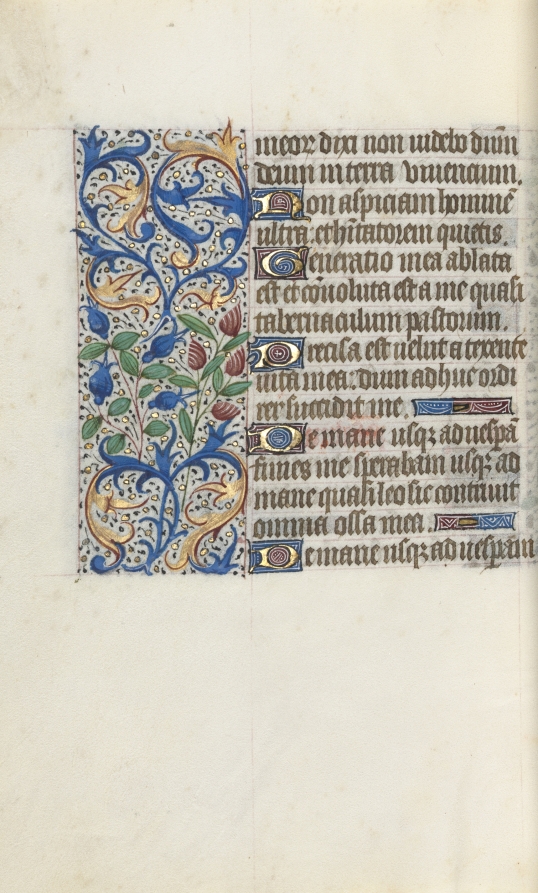 meoꝝ dixi non uidebo dn̄m
deum in terra viuencium.
Non aspiciam hominē
ultra: et hītatorem quietis.
Generatio mea ablata
est et cōuoluta est a me quasi
tabernaculum pastorum.
Precisa est uelut a texente
uita mea: dum adhuc ordi
rer succidit me.
De mane usqꝫ ad uespā
finies me sperabam usqꝫ ad
mane quasi leo sic contriuit
omnia ossa mea.
De mane usqꝫ ad uesperam